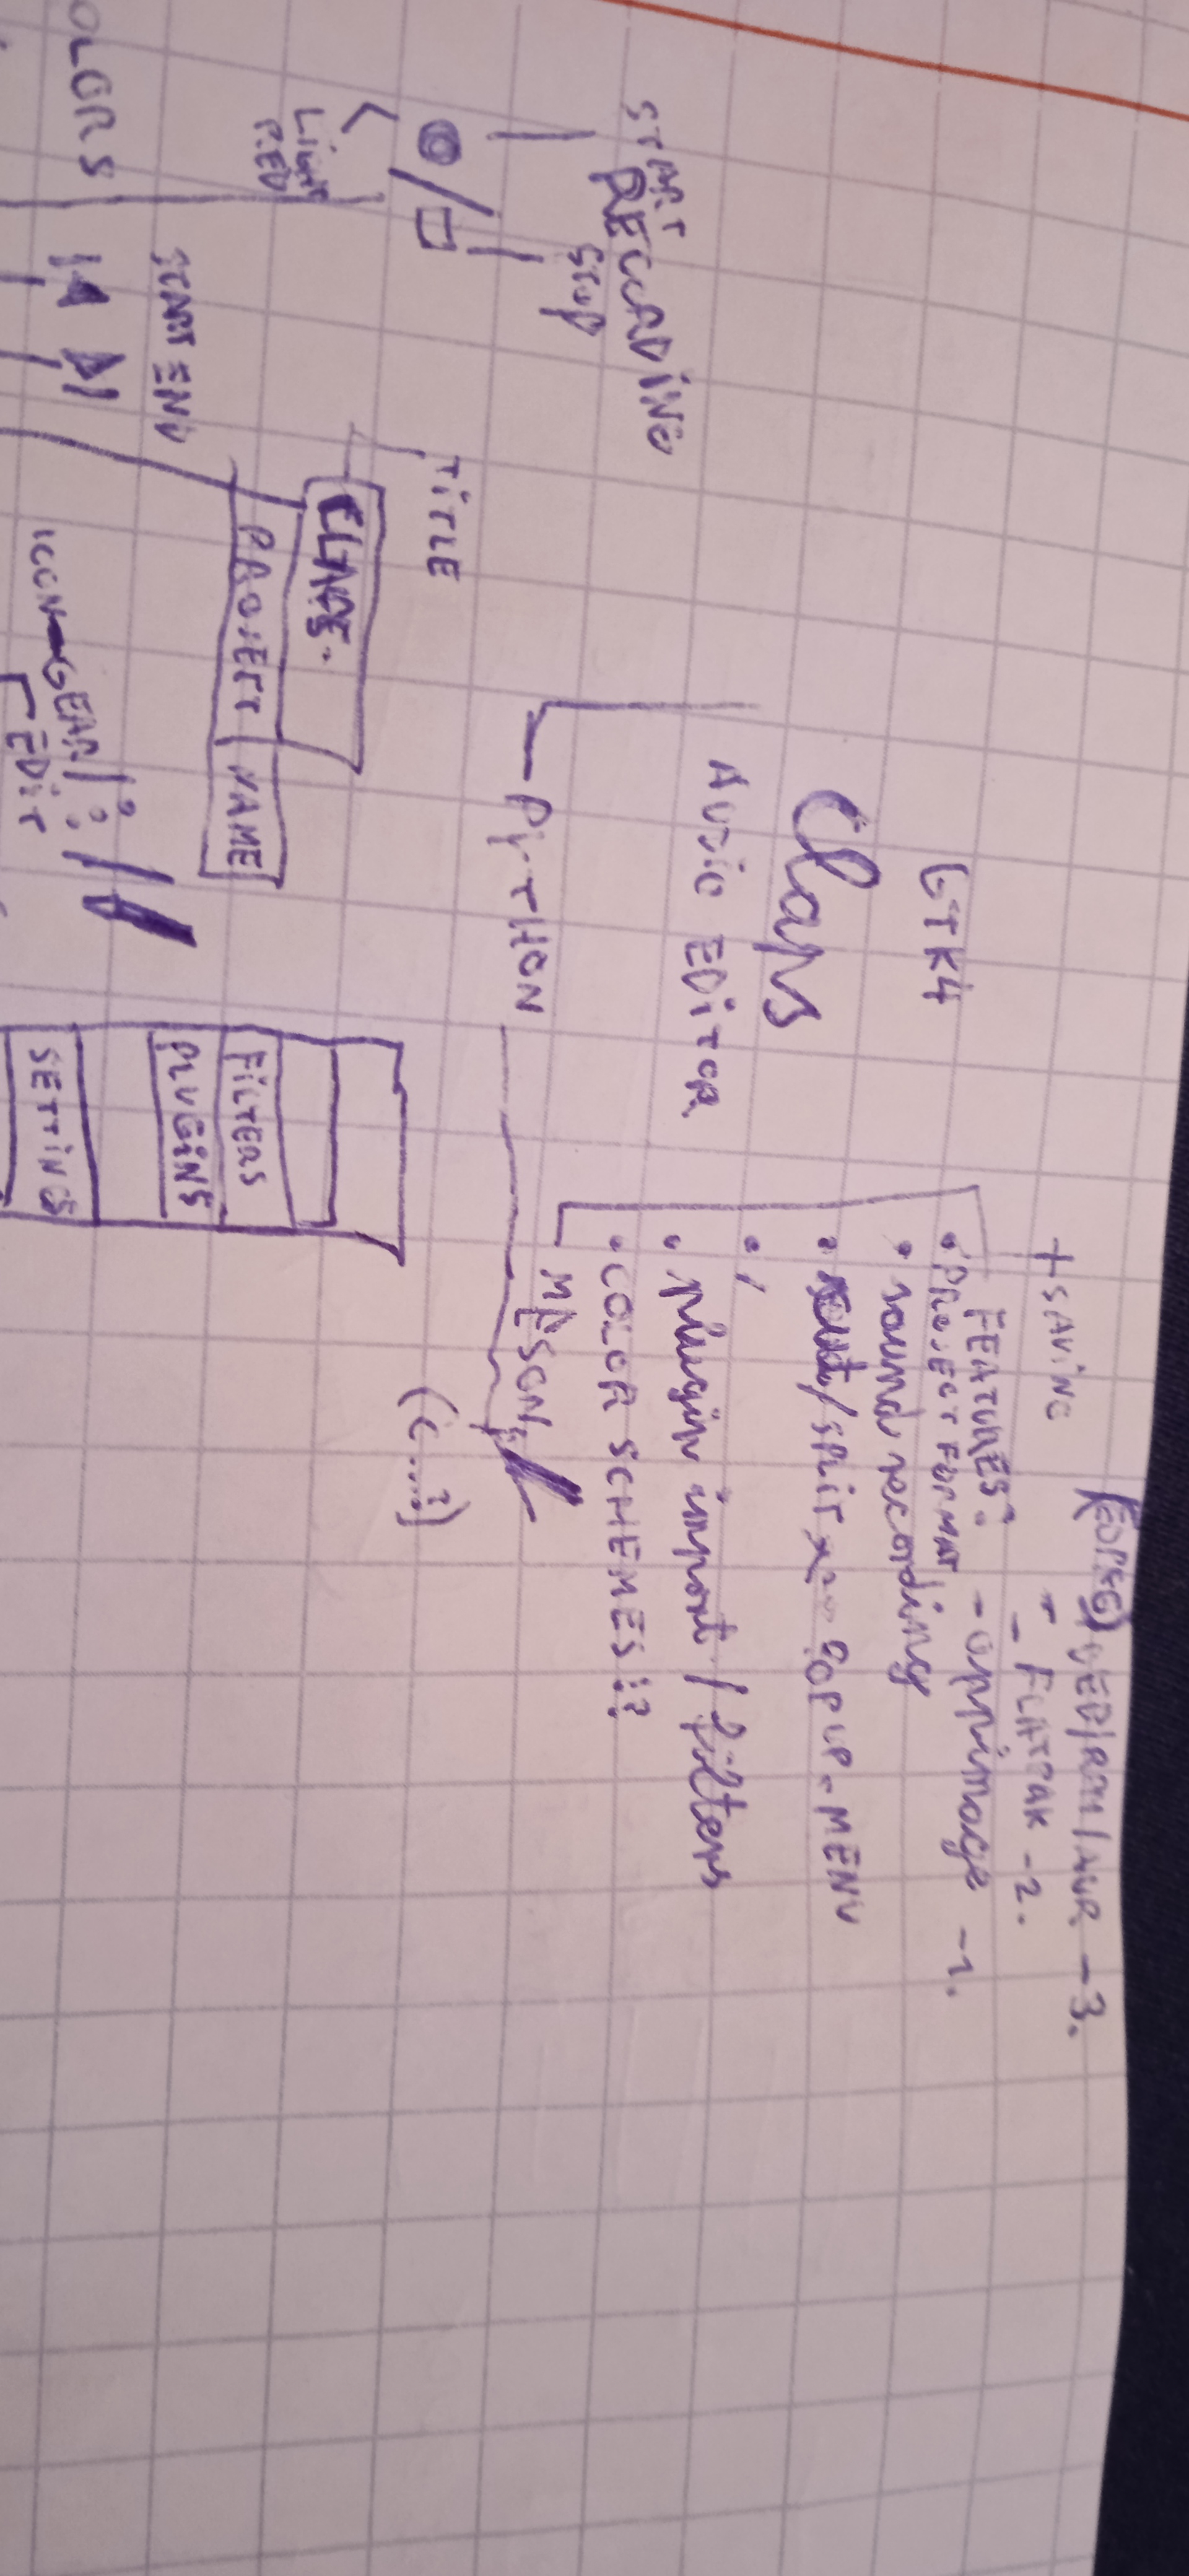 GTK4
Claps
AUDIO EDITOR
PYTHON
MESON
(C....?)
DEB/RPM/AUR - 3.
- FLATPAK - 2.
- appimage - 1.
+ SAVING
FEATURES:
• PROJECT FORMAT
• sound recording
• cut/SPLIT POPUP-MENU
• plugin import / filters
• COLOR SCHEMES!?
START
RECORDING
STOP
LIGHT
RED
TITLE
CLAPS.
PROJECT NAME
START END
ICON
GEAR
EDIT
FILTERS
PLUGINS
SETTINGS